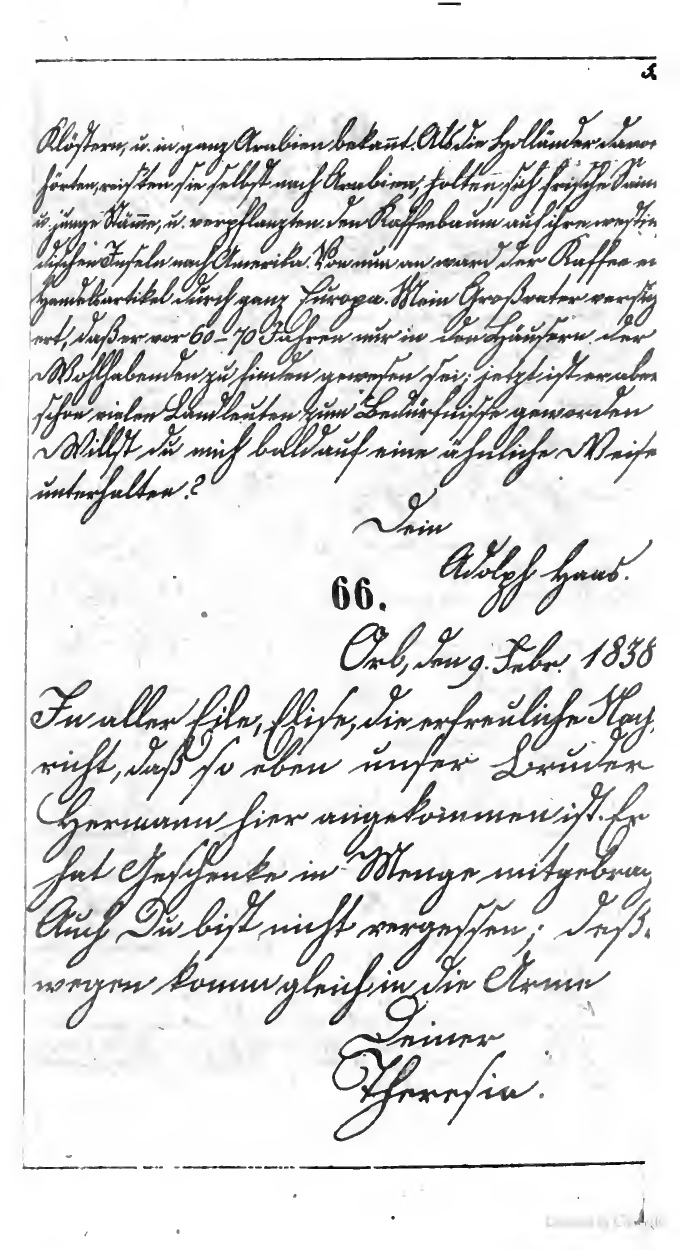 Klöstern, u. in ganz Arabien bekañt. Als die Holländer davon
hörten, reis'ten sie selbst nach Arabien, holten sich frische Saam
u. junge Stäm̄e, u. verpflanzten den Kaffeebaum auf ihre westin
dischen Inseln nach Amerika. Von nun an ward der Kaffee ei
Handelsartikel durch ganz Europa. Mein Großvater versich
ert, daß er vor 60–70 Jahren nur in den Häusern der
Wohlhabenden zu finden gewesen sei; jetzt ist er aber
schon vielen Landleuten zum Bedürfnisse geworden
Willst du mich bald auf eine ähnliche Weise
unterhalten?
Dein
Adolph Haas.
66.
Orb, den 9. Febr. 1838
In aller Eile, Elise, die erfreuliche Nach
richt, daß so eben unser Bruder
Hermann hier angekommen ist. Er
hat Geschenke in Menge mitgebrac
Auch Du bist nicht vergessen; deß-
wegen komm gleich in die Arme
Deiner
Theresia.